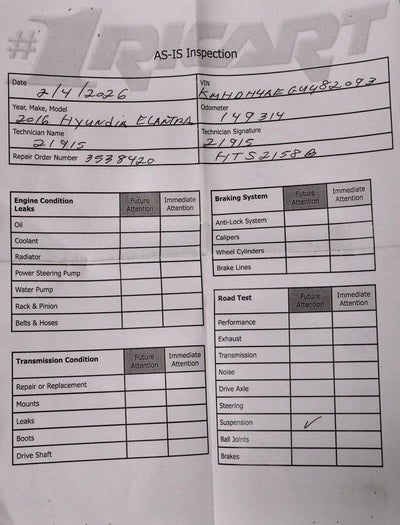 #1 RICART
AS-IS Inspection
Date
2/4/2026
VIN
KMHDH4AEGU482093
Year, Make, Model
2016 Hyundia ELANTRA
Odometer
149314
Technician Name
21915
Technician Signature
21915
Repair Order Number 3538420
HTS2158B
Engine Condition
Leaks
Future Attention
Immediate Attention
Oil
Coolant
Radiator
Power Steering Pump
Water Pump
Rack & Pinion
Belts & Hoses
Transmission Condition
Future Attention
Immediate Attention
Repair or Replacement
Mounts
Leaks
Boots
Drive Shaft
Braking System
Future Attention
Immediate Attention
Anti-Lock System
Calipers
Wheel Cylinders
Brake Lines
Road Test
Future Attention
Immediate Attention
Performance
Exhaust
Transmission
Noise
Drive Axle
Steering
Suspension ✓
Ball Joints
Brakes